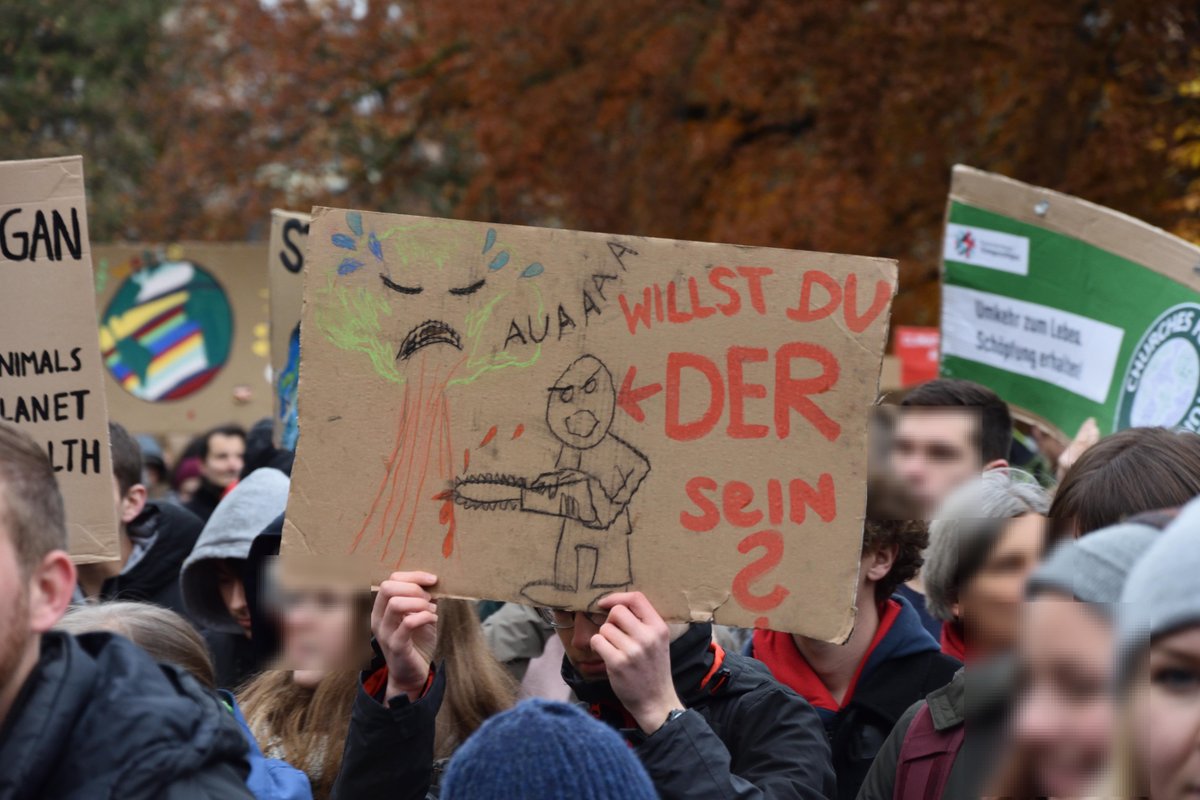 GAN
NIMALS
LANET
LTH
S
AUAAAAA
WILLST DU
DER
SEIN
?
Umkehr zum Leben.
Schöpfung erhalten!
CHURCHES